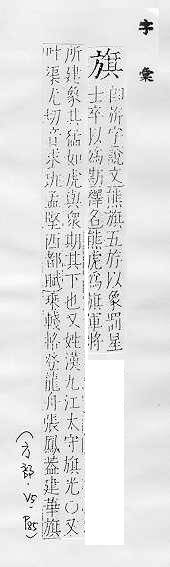 字彙
旗 同旂字說文熊旗五斿以象罰星
士卒以爲期釋名熊虎爲旗軍將
所建象其猛如虎與衆期其下也又姓漢九江太守旗光〇又
叶渠尤切音求班孟堅西都賦乘輚輅登龍舟張鳳蓋建華旗
(方部·V5·P85)